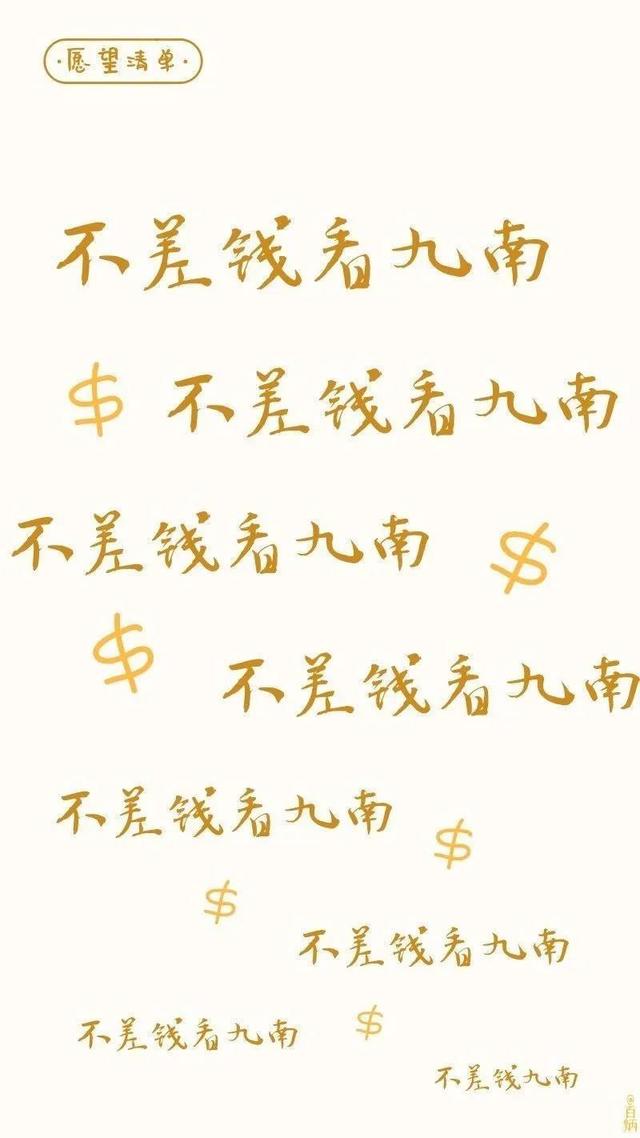 ·愿望清单·
不差钱看九南
$ 不差钱看九南
不差钱看九南 $
$
不差钱看九南
不差钱看九南
$
$
不差钱看九南
不差钱看九南 $
不差钱九南